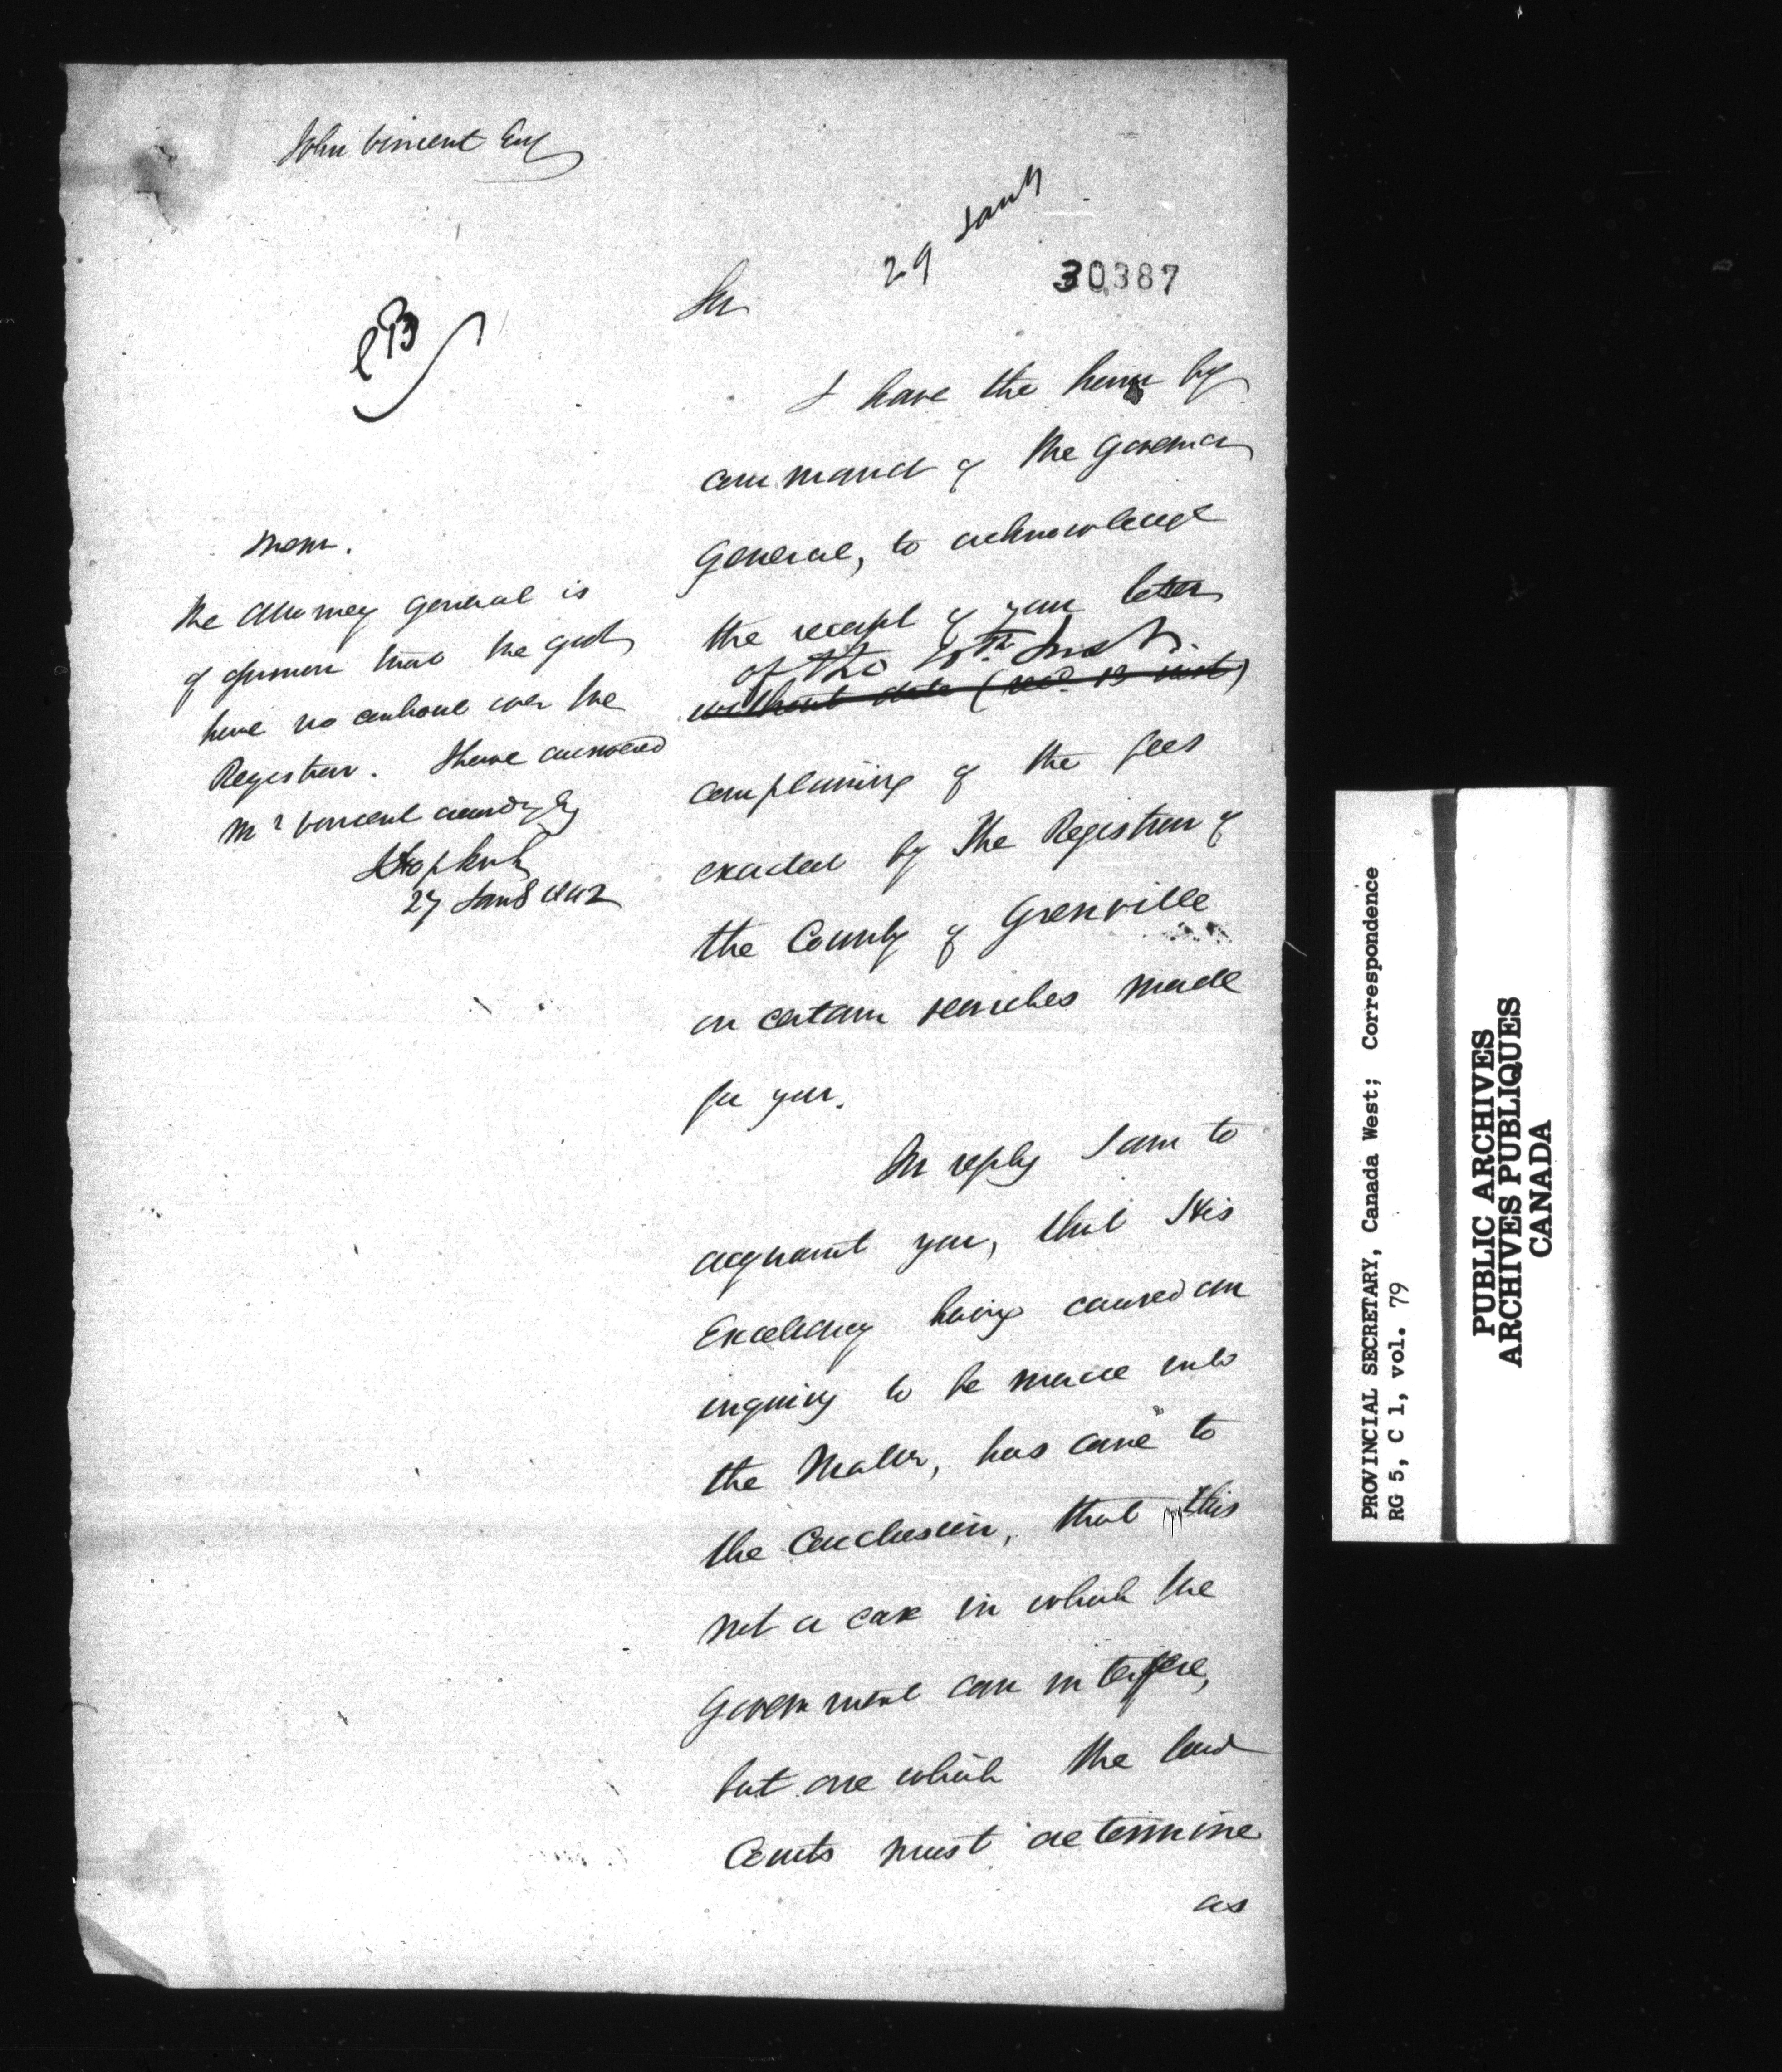 John Vincent Esq
29 Jany
30387
Sir
I have the honor by
command of the Governor
General, to acknowledge
the receipt of your letter
of the inst.
without date (recd. 13 inst)
complaining of the fees
exacted by the Registrar of
the County of Grenville
on certain searches made
for you.
In reply I am to
acquaint you, that His
Excellency having caused an
inquiry to be made into
the Matter, has come to
the Conclusion, that this
not a case in which the
Government can interfere,
but one which the law
Courts must determine
as
Mem.
The Attorney General is
of opinion that the Govt
have no control over the
Registrar. I have answered
Mr Vincent accordingly
SHopkirk
27 Jany 1842
PROVINCIAL SECRETARY, Canada West; Correspondence
RG 5, C 1, vol. 79
PUBLIC ARCHIVES
ARCHIVES PUBLIQUES
CANADA